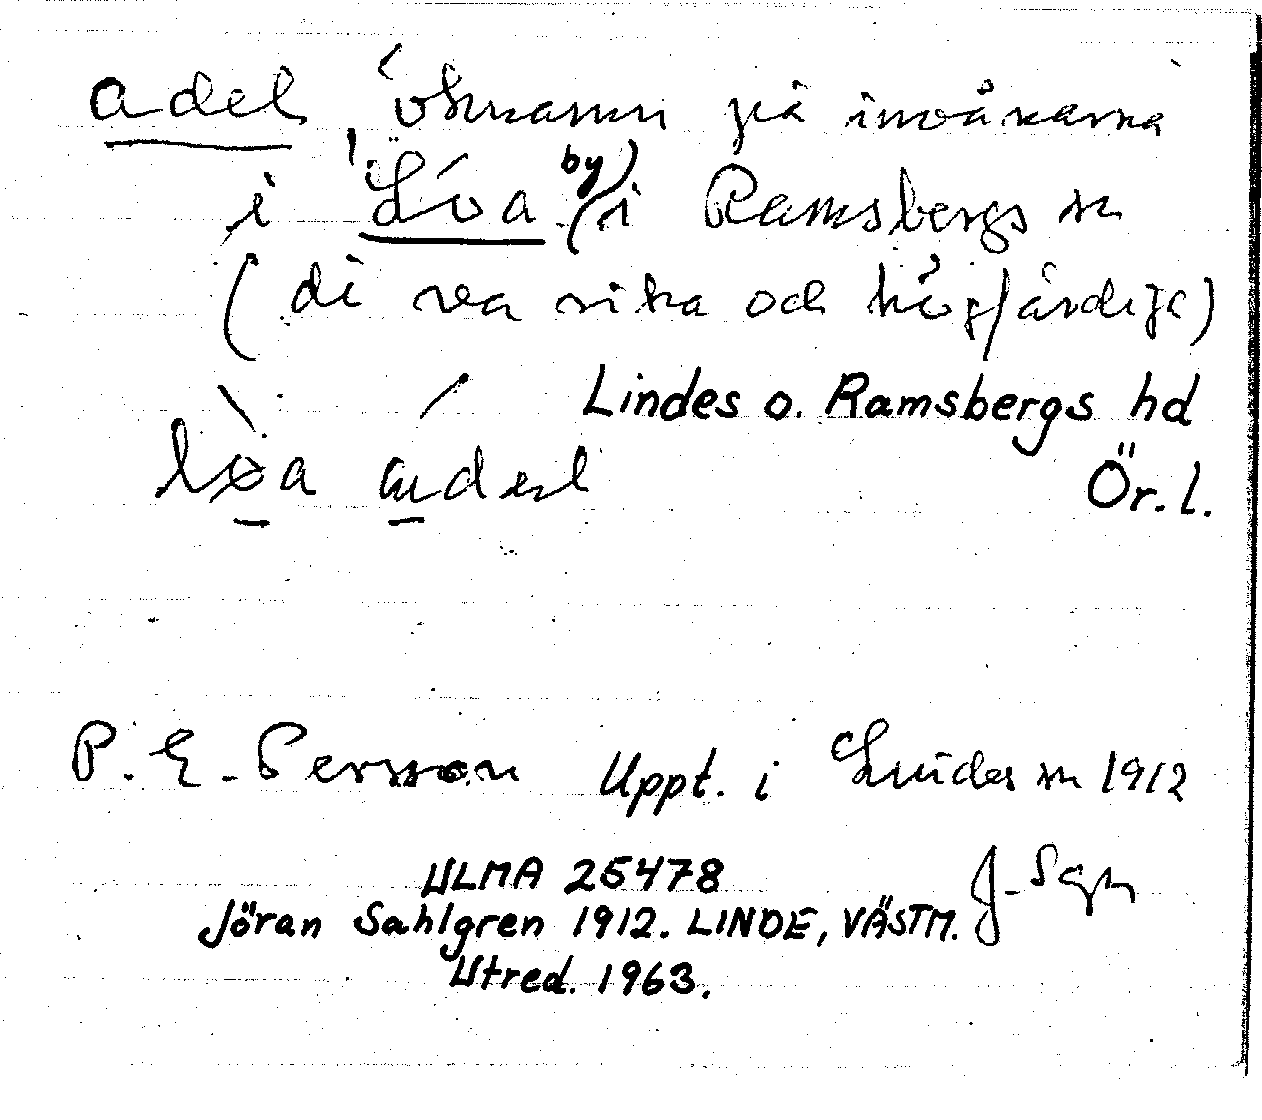 adel, öknamn på invånarna
i Löa by (i Ramsbergs sn
(di va rika och högfärdiga)
Lindes o. Ramsbergs hd
Ör. l.
P. E. Persson Uppt. i Lindes sn 1912
ULMA 25478 J. Sgn
Jöran Sahlgren 1912. LINDE, VÄSTM.
Utred. 1963.